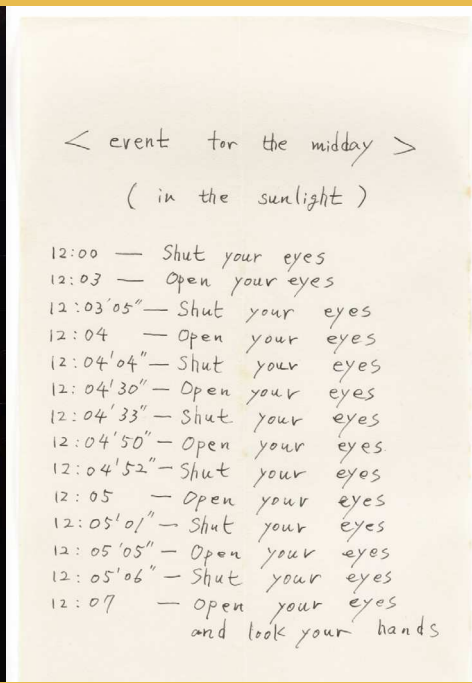 < event for the midday >
( in the sunlight )
12:00 — Shut your eyes
12:03 — Open your eyes
12:03'05" — Shut your eyes
12:04 — Open your eyes
12:04'04" — Shut your eyes
12:04'30" — Open your eyes
12:04'33" — Shut your eyes
12:04'50" — Open your eyes
12:04'52" — Shut your eyes
12:05 — Open your eyes
12:05'01" — Shut your eyes
12:05'05" — Open your eyes
12:05'06" — Shut your eyes
12:07 — Open your eyes
and look your hands